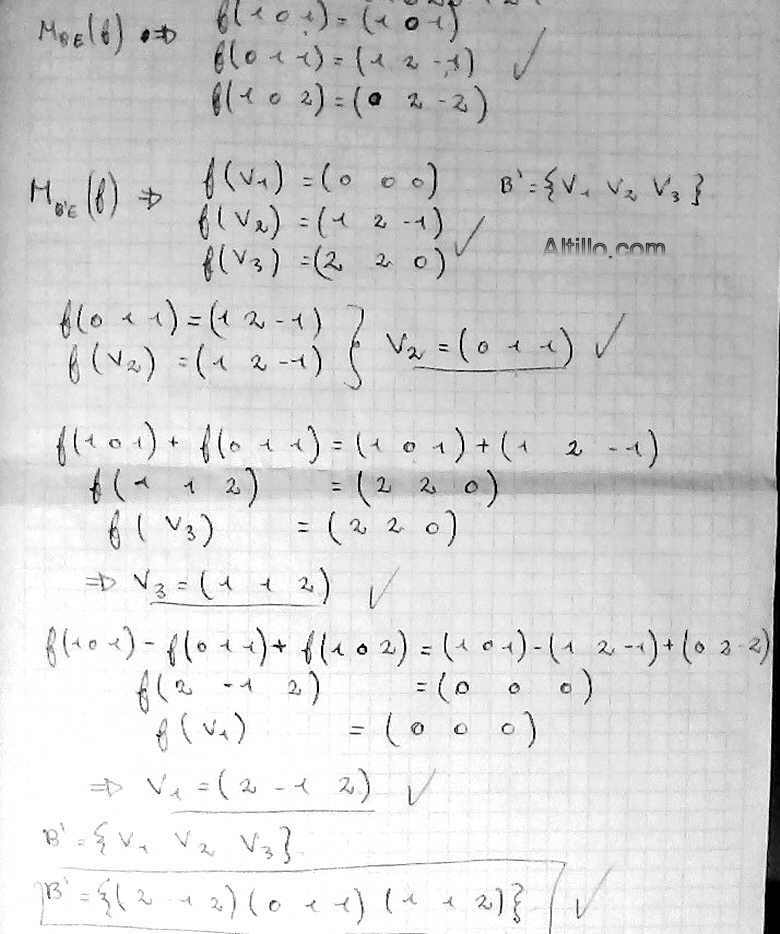 M_BE(f) ⇒ f(1 0 1) = (1 0 1)
f(0 1 1) = (1 2 -1) ✓
f(1 0 2) = (0 2 -2)
M_B'E(f) ⇒ f(V1) = (0 0 0) B' = {V1 V2 V3}
f(V2) = (1 2 -1) ✓
Altillo.com
f(V3) = (2 2 0)
f(0 1 1) = (1 2 -1)
f(V2) = (1 2 -1) } V2 = (0 1 1) ✓
f(1 0 1) + f(0 1 1) = (1 0 1) + (1 2 -1)
f(1 1 2) = (2 2 0)
f(V3) = (2 2 0)
⇒ V3 = (1 1 2) ✓
f(1 0 1) - f(0 1 1) + f(1 0 2) = (1 0 1) - (1 2 -1) + (0 2 -2)
f(2 -1 2) = (0 0 0)
f(V1) = (0 0 0)
⇒ V1 = (2 -1 2) ✓
B' = {V1 V2 V3}
B' = {(2 -1 2) (0 1 1) (1 1 2)} ✓